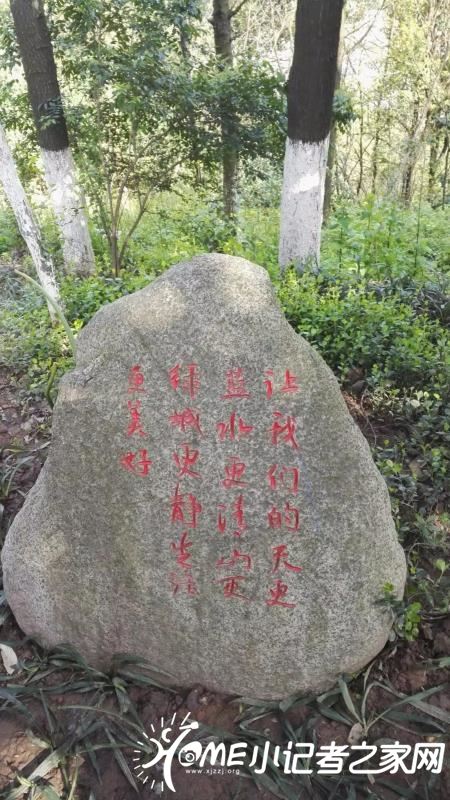 让我们的天更
蓝水更清山更
绿城更静生活
更美好
HOME小记者之家网
www.xjzzj.org